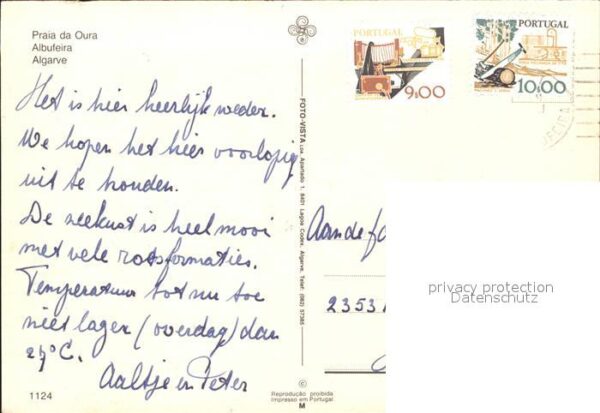 Praia da Oura
Albufeira
Algarve
Het is hier heerlijk weder.
We hopen het hier voorlopig
uit te houden.
De zeekust is heel mooi
met vele rotsformaties.
Temperatuur tot nu toe
niet lager (overdag) dan
°C.
Aaltje en Peter
1124
FOTO-VISTA LDA. Apartado 1. 8401 Lagoa Codex. Algarve. Tel: (082) 57385
© 
Reprodução proibida
Impresso em Portugal
M
PORTUGAL
9$00
PORTUGAL
10$00
Aan de fa
2353
privacy protection
Datenschutz